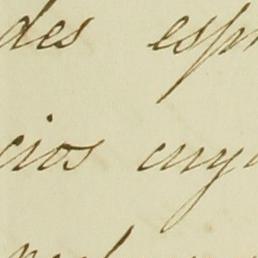 des esp
cios cuy